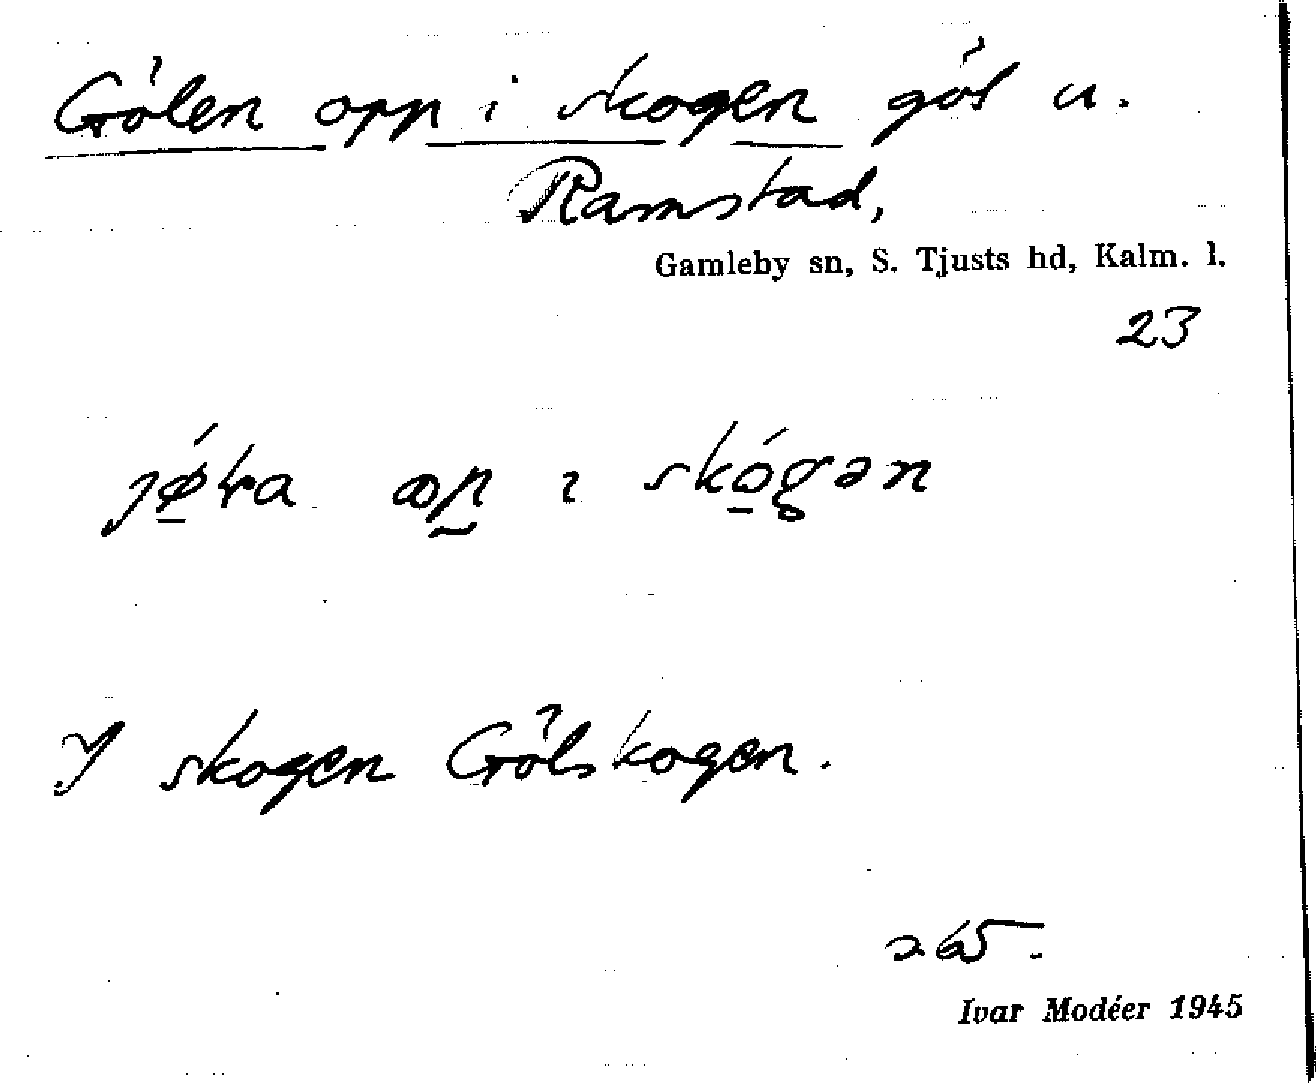 Gölen opp i skogen göl u.
Ramstad,
Gamleby sn, S. Tjusts hd, Kalm. l.
23
i skógən
I skogen Gölskogen.
265.
Ivar Modéer 1945